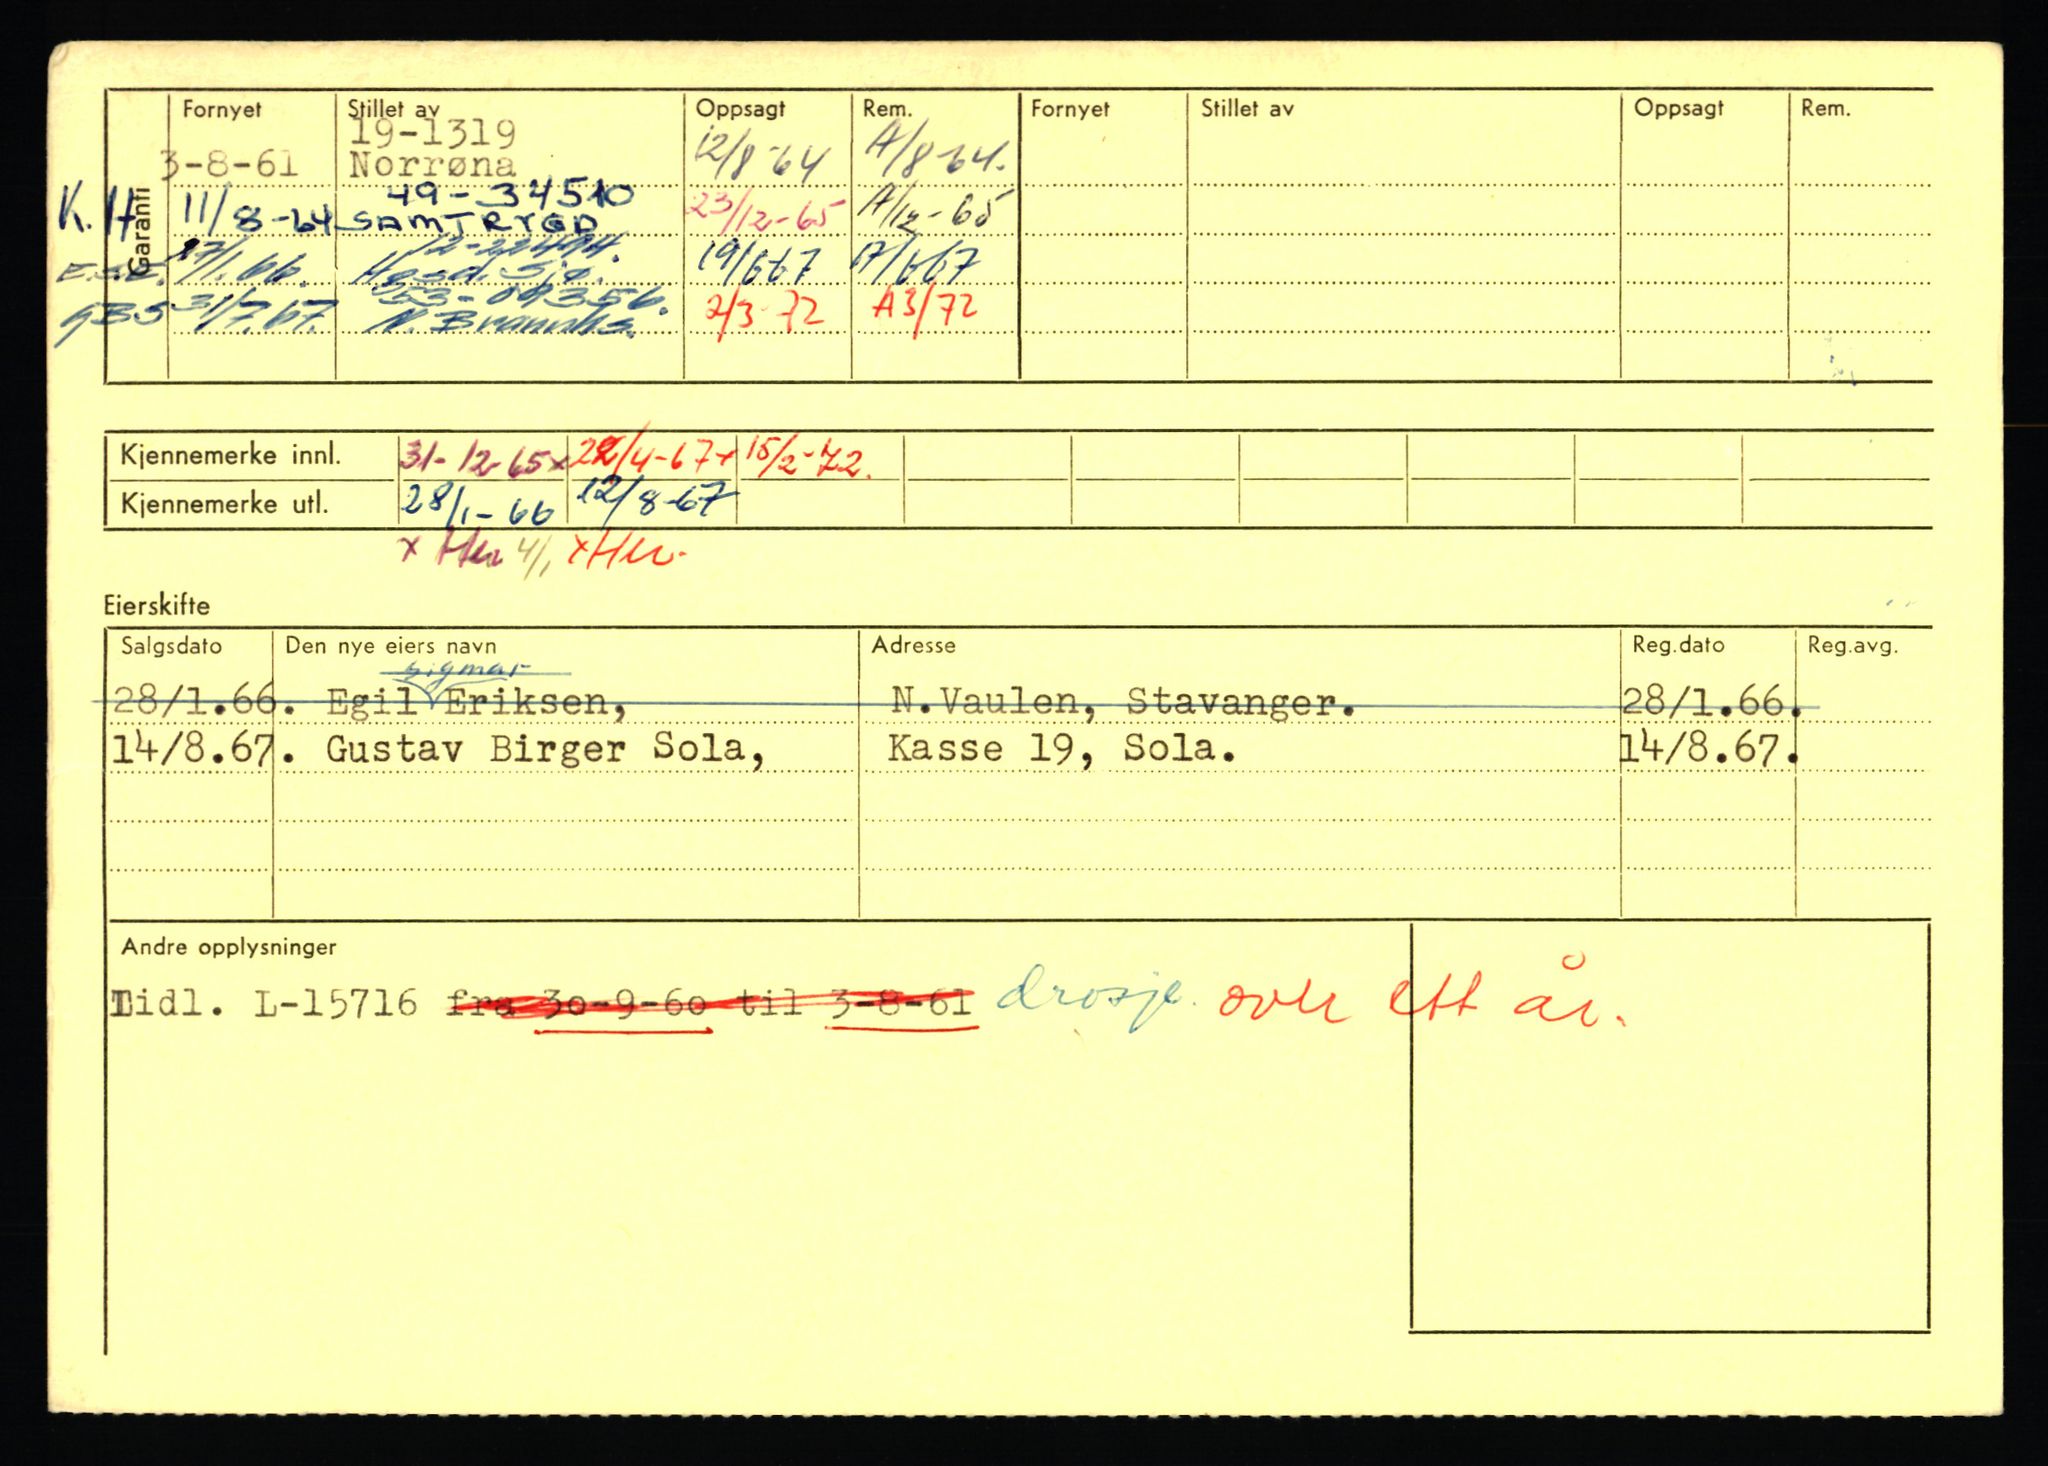 Garanti Fornyet Stillet av Oppsagt Rem. Fornyet Stillet av Oppsagt Rem.
19-1319
3-8-61 Norrøna 12/8-64 A/8-64.
49-34510
K.H 11/8-64 SAMTRYGD 23/12-65 A/12-65
12-22494.
E.S.E. 27/1.66. 19/6 67 A/6 67
53-09356.
GBS 31/7.67. N. 2/3-72 A3/72
Kjennemerke innl. 31-12-65x 22/4-67x 15/2-72.
Kjennemerke utl. 28/1-66 12/8-67
x 4/1 x
Eierskifte
Salgsdato Den nye eiers navn Adresse Reg.dato Reg.avg.
Sigmar
28/1.66. Egil Eriksen, N.Vaulen, Stavanger. 28/1.66.
14/8.67. Gustav Birger Sola, Kasse 19, Sola. 14/8.67.
Andre opplysninger
Tidl. L-15716 fra 30-9-60 til 3-8-61 drosje. over ett år.